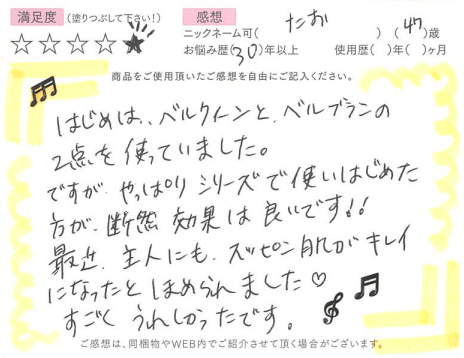 満足度(塗りつぶして下さい!) 感想
☆☆☆☆★ ニックネーム可( たお )(47)歳
お悩み歴(30)年以上 使用歴( )年( )ヶ月
商品をご使用頂いたご感想を自由にご記入ください。
はじめは、ベルクイーンと、ベルブランの
2点を使っていました。
ですが、やっぱりシリーズで使いはじめた
方が、断然効果は良いです!!
最近、主人にも、スッピン肌がキレイ
になったとほめられました♡
すごくうれしかったです。
ご感想は、同梱物やWEB内でご紹介させて頂く場合がございます。